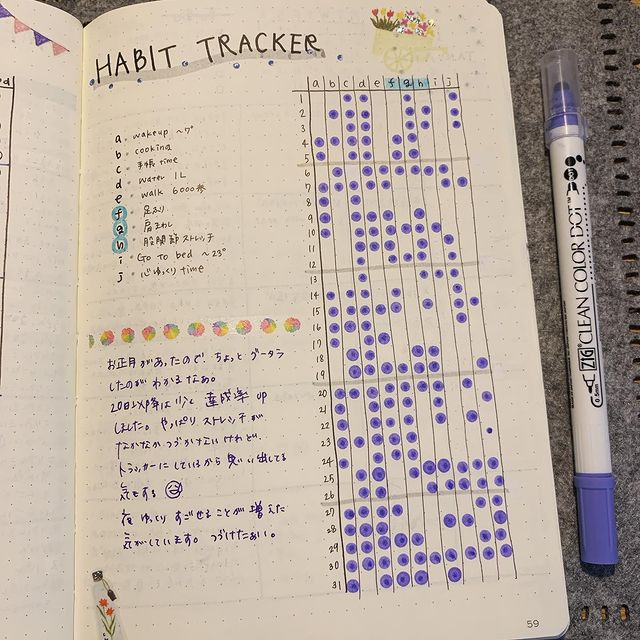 HABIT TRACKER
a b c d e f g h i j
a. wakeup ~7°
b. cooking
c. 手帳 time
d. water 1L
e. walk 6000歩
f. 足ふり
g. 肩まわし
h. 股関節ストレッチ
i. Go to bed ~23°
j. 心ゆっくり time
1
2
3
4
5
6
7
8
9
10
11
12
13
14
15
16
17
18
19
20
21
22
23
24
25
26
27
28
29
30
31
お正月があったので、ちょっとグータラ
したのがわかるなぁ。
20日以降は少しく 達成率 up
しました。やっぱりストレッチが
なかなかつづかないけれど、
トラッカーにしているから思い出してる
気もする
夜ゆっくりすごせることが増えた
気がしています。つづけたぁい。
59
ZIG CLEAN COLOR DOT™
0.5mm